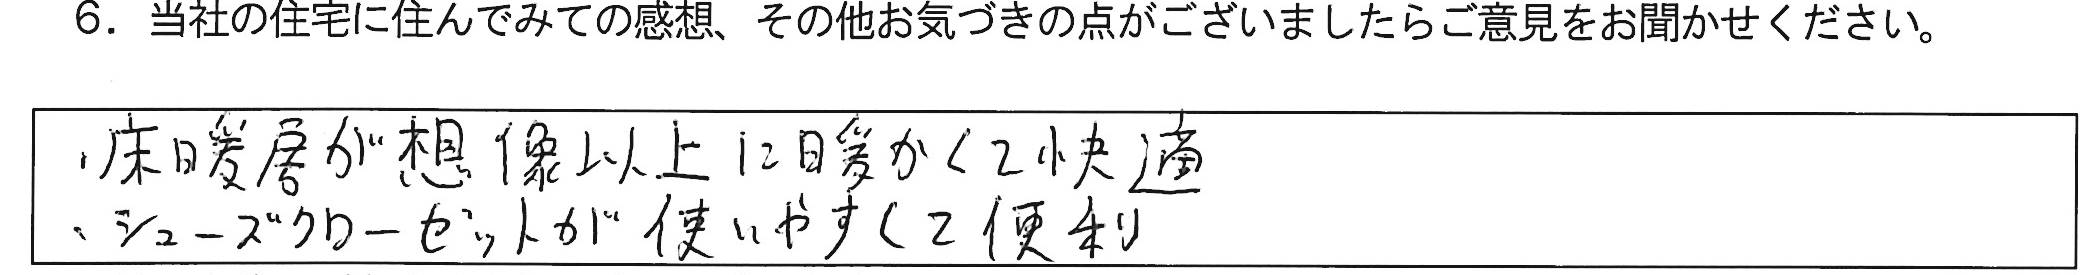 6. 当社の住宅に住んでみての感想、その他お気づきの点がございましたらご意見をお聞かせください。
・床暖房が想像以上に暖かくて快適
・シューズクローゼットが使いやすくて便利